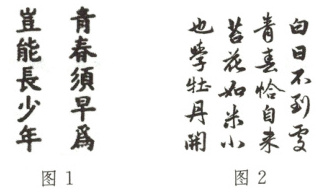 青春須早為
豈能長少年
图 1
白日不到處
青春恰自来
苔花如米小
也學牡丹開
图 2